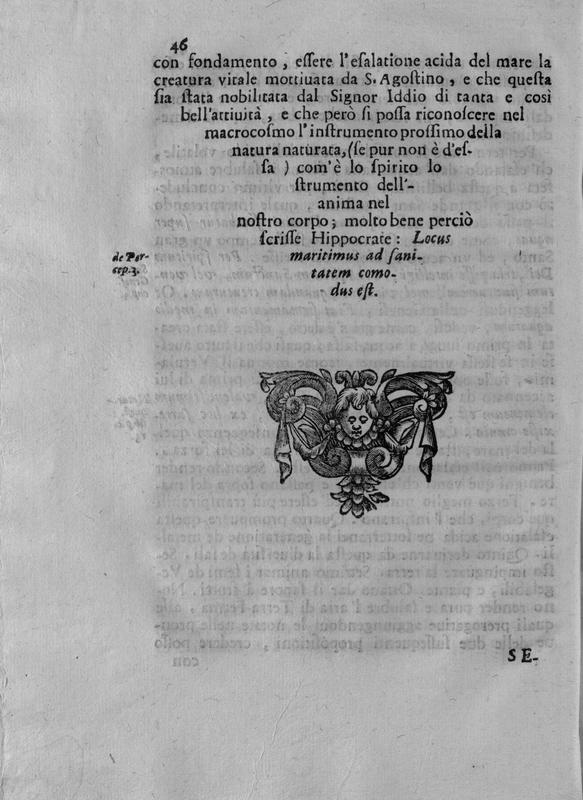 46
con fondamento, eſſere l'eſalatione acida del mare la
creatura vitale mottiuata da S. Agoſtino, e che queſta
ſia ſtata nobilitata dal Signor Iddio di tanta e così
bell'attiuità, e che però ſi poſſa riconoſcere nel
macrocoſmo l'inſtrumento proſſimo della
natura naturata, (ſe pur non è d'eſ-
ſa) com'è lo ſpirito lo
ſtrumento dell'-
anima nel
noſtro corpo; molto bene perciò
ſcriſſe Hippocrate: Locus
de Per-
maritimus ad ſani-
cep. 3.
tatem como-
dus eſt.
SE-